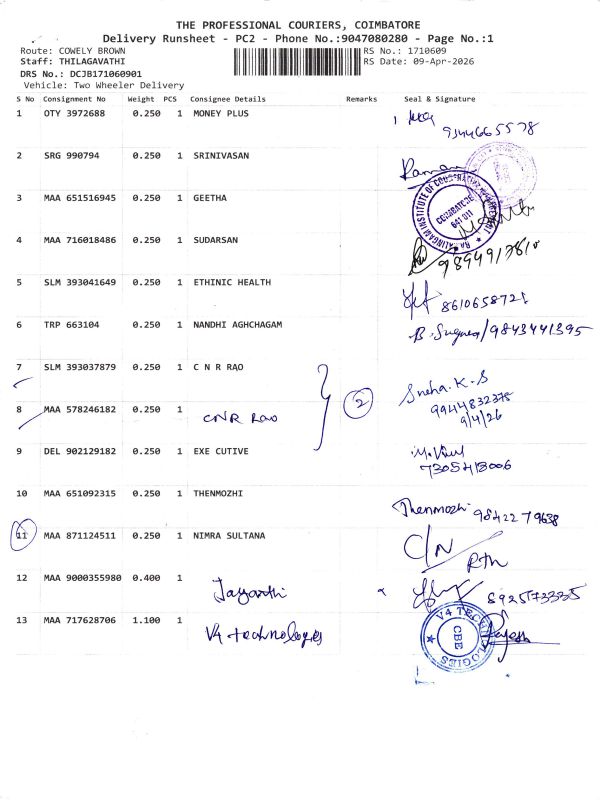 THE PROFESSIONAL COURIERS, COIMBATORE
Delivery Runsheet - PC2 - Phone No.:9047080280 - Page No.:1
Route: COWELY BROWN
RS No.: 1710609
Staff: THILAGAVATHI
RS Date: 09-Apr-2026
DRS No.: DCJB171060901
Vehicle: Two Wheeler Delivery
S No Consignment No Weight PCS Consignee Details Remarks Seal & Signature
1 OTY 3972688 0.250 1 MONEY PLUS
9344665578
2 SRG 990794 0.250 1 SRINIVASAN Raman
3 MAA 651516945 0.250 1 GEETHA
COIMBATORE
641 011
4 MAA 716018486 0.250 1 SUDARSAN
5 SLM 393041649 0.250 1 ETHINIC HEALTH 8610658721
6 TRP 663104 0.250 1 NANDHI AGHCHAGAM B. /9843441395
7 SLM 393037879 0.250 1 C N R RAO Sneha.K.S
2 9944832378
8 MAA 578246182 0.250 1 CNR Rao 9/4/26
9 DEL 902129182 0.250 1 EXE CUTIVE
7305413006
10 MAA 651092315 0.250 1 THENMOZHI Thenmozhi 9842279638
11 MAA 871124511 0.250 1 NIMRA SULTANA C/N
RTN
12 MAA 9000355980 0.400 1 Jayanthi 8925173335
13 MAA 717628706 1.100 1 V4 technologies
V4 TECHNOLOGIES
CBE
Rajesh